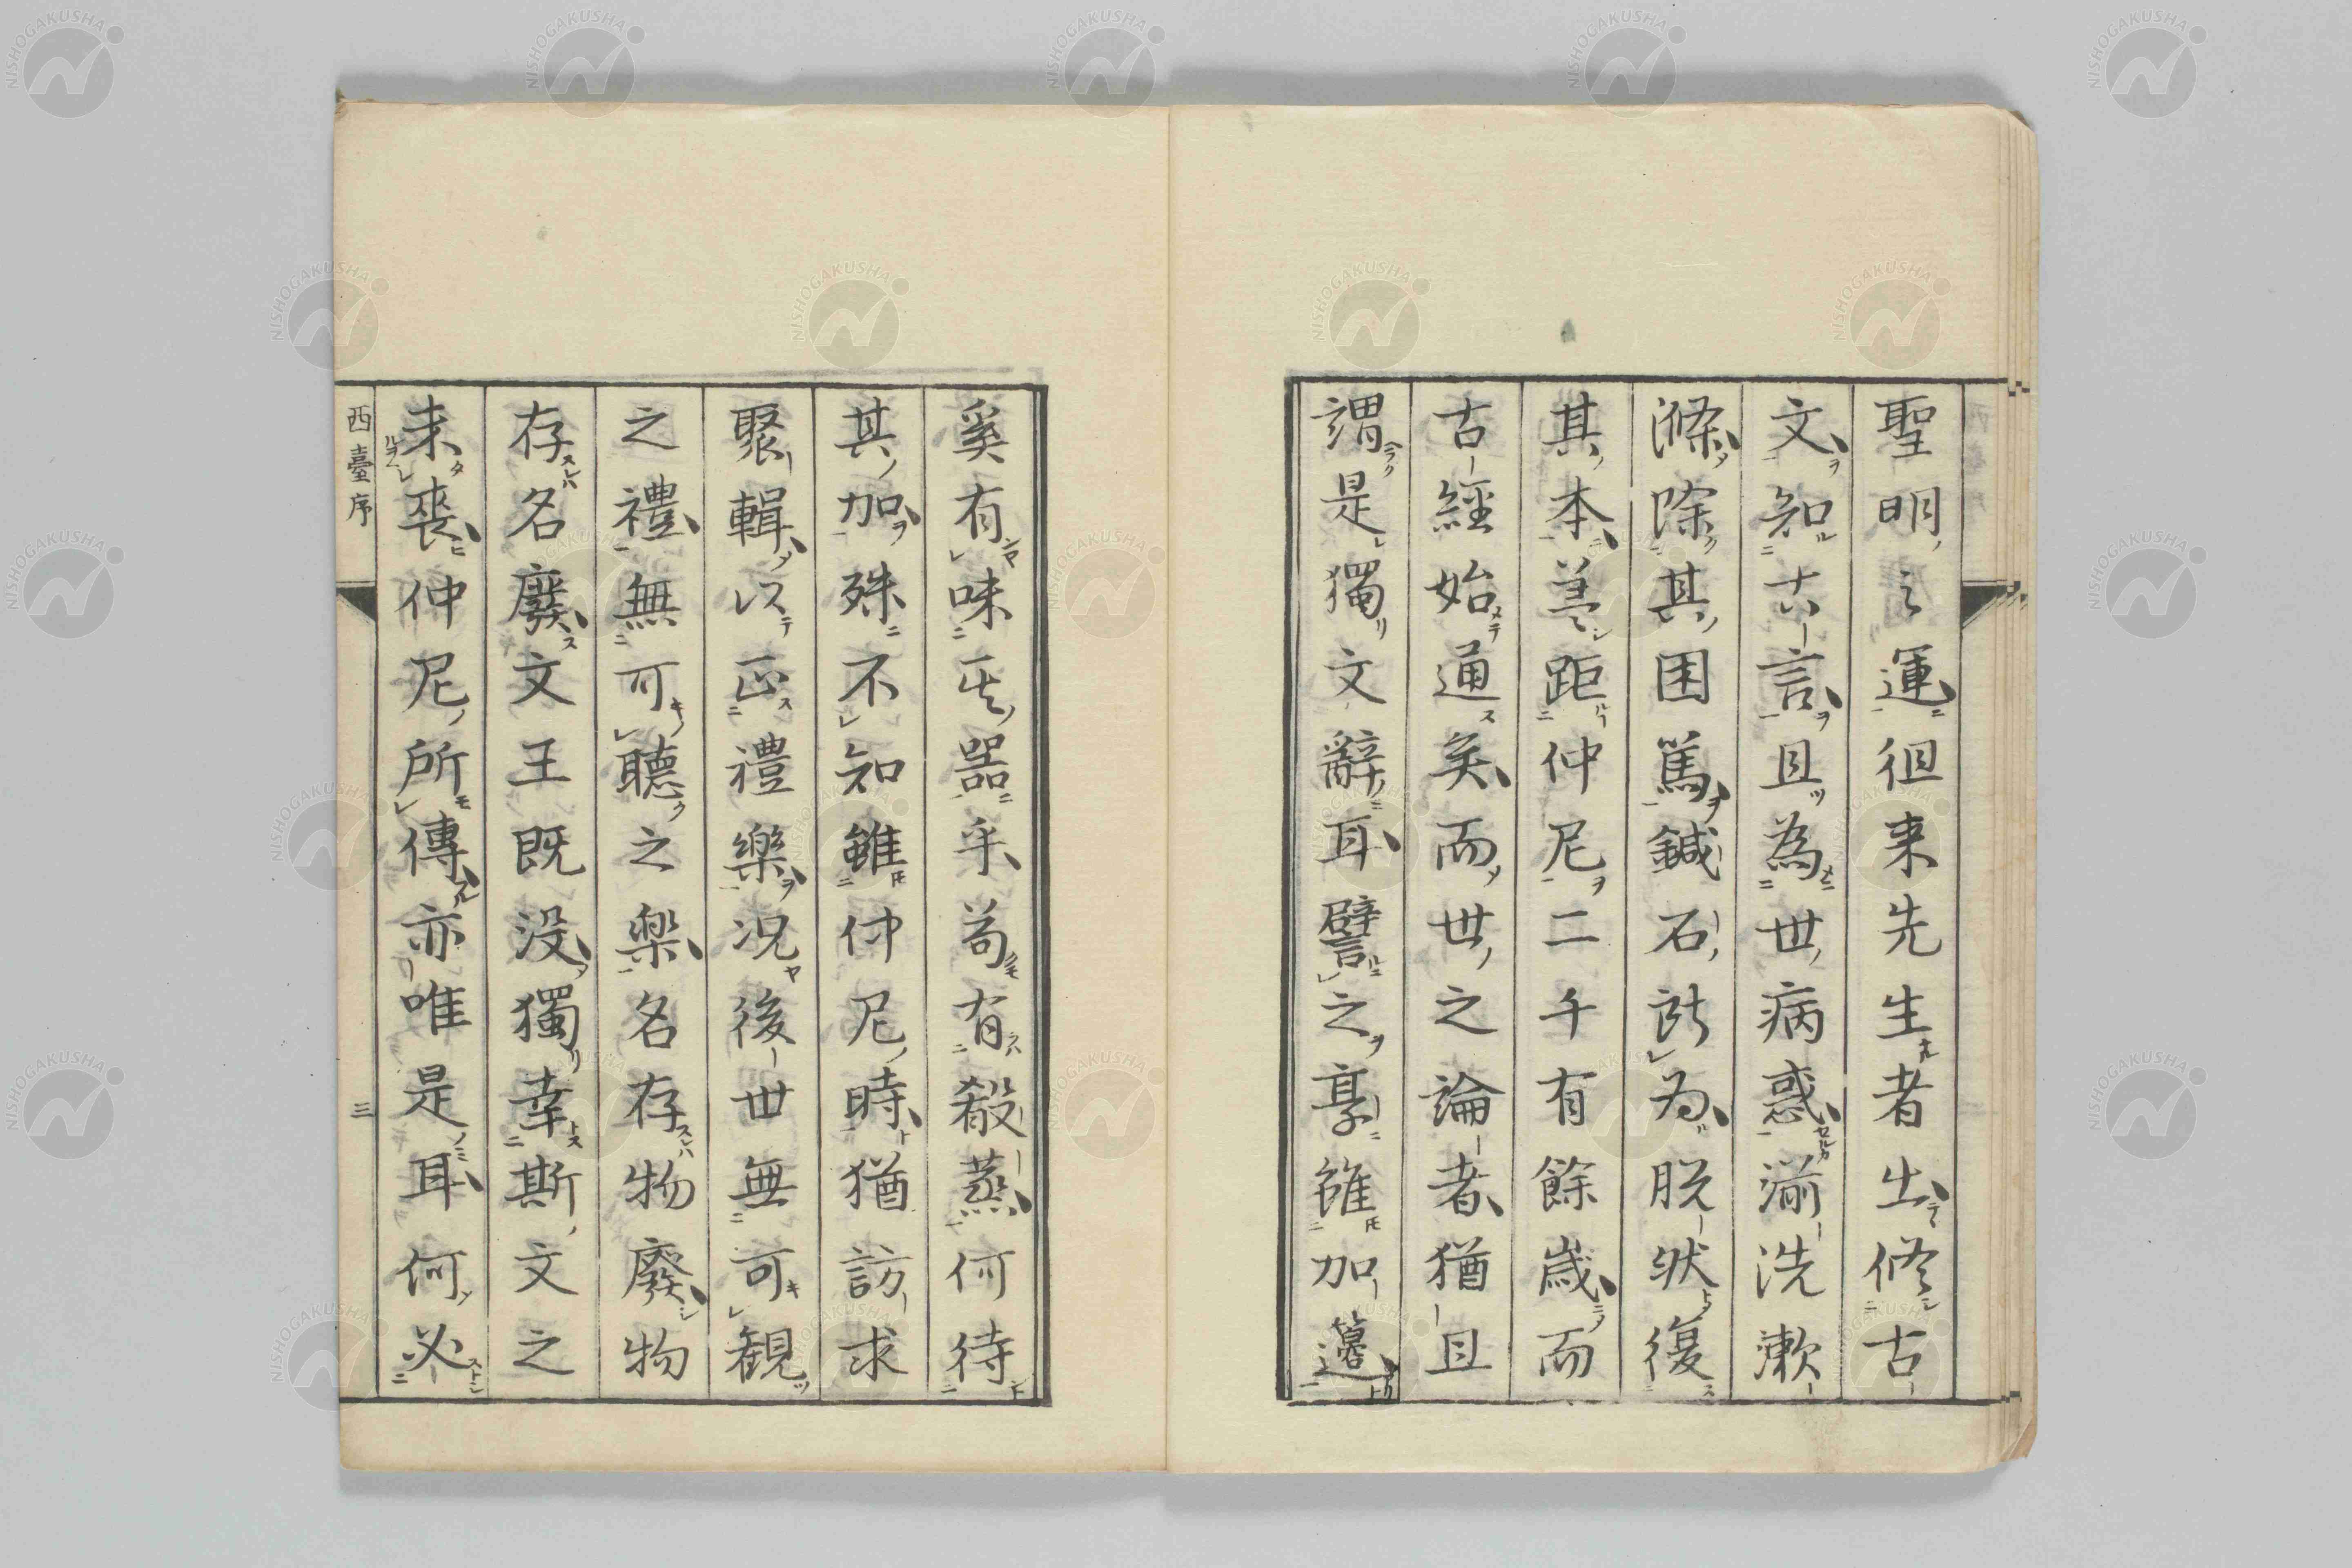 聖明之運徂来先生者出修古
文知古言且為世病惑湔洗漱
滌除其困篤鍼石所為脱然復
其本善距仲尼二千有餘歳而
古經始通矣而世之論者猶且
謂是獨文辭耳譬之享雖加籩
奚有味其器乎苟有殽蒸何待
其加殊不知雖仲尼時猶訪求
聚輯以正禮樂况後世無可観
之禮無可聽之樂名存物廢物
存名廢文王既没獨幸斯文之
未喪仲尼所傳亦唯是耳何必
西臺序
三
NISHOGAKUSHA